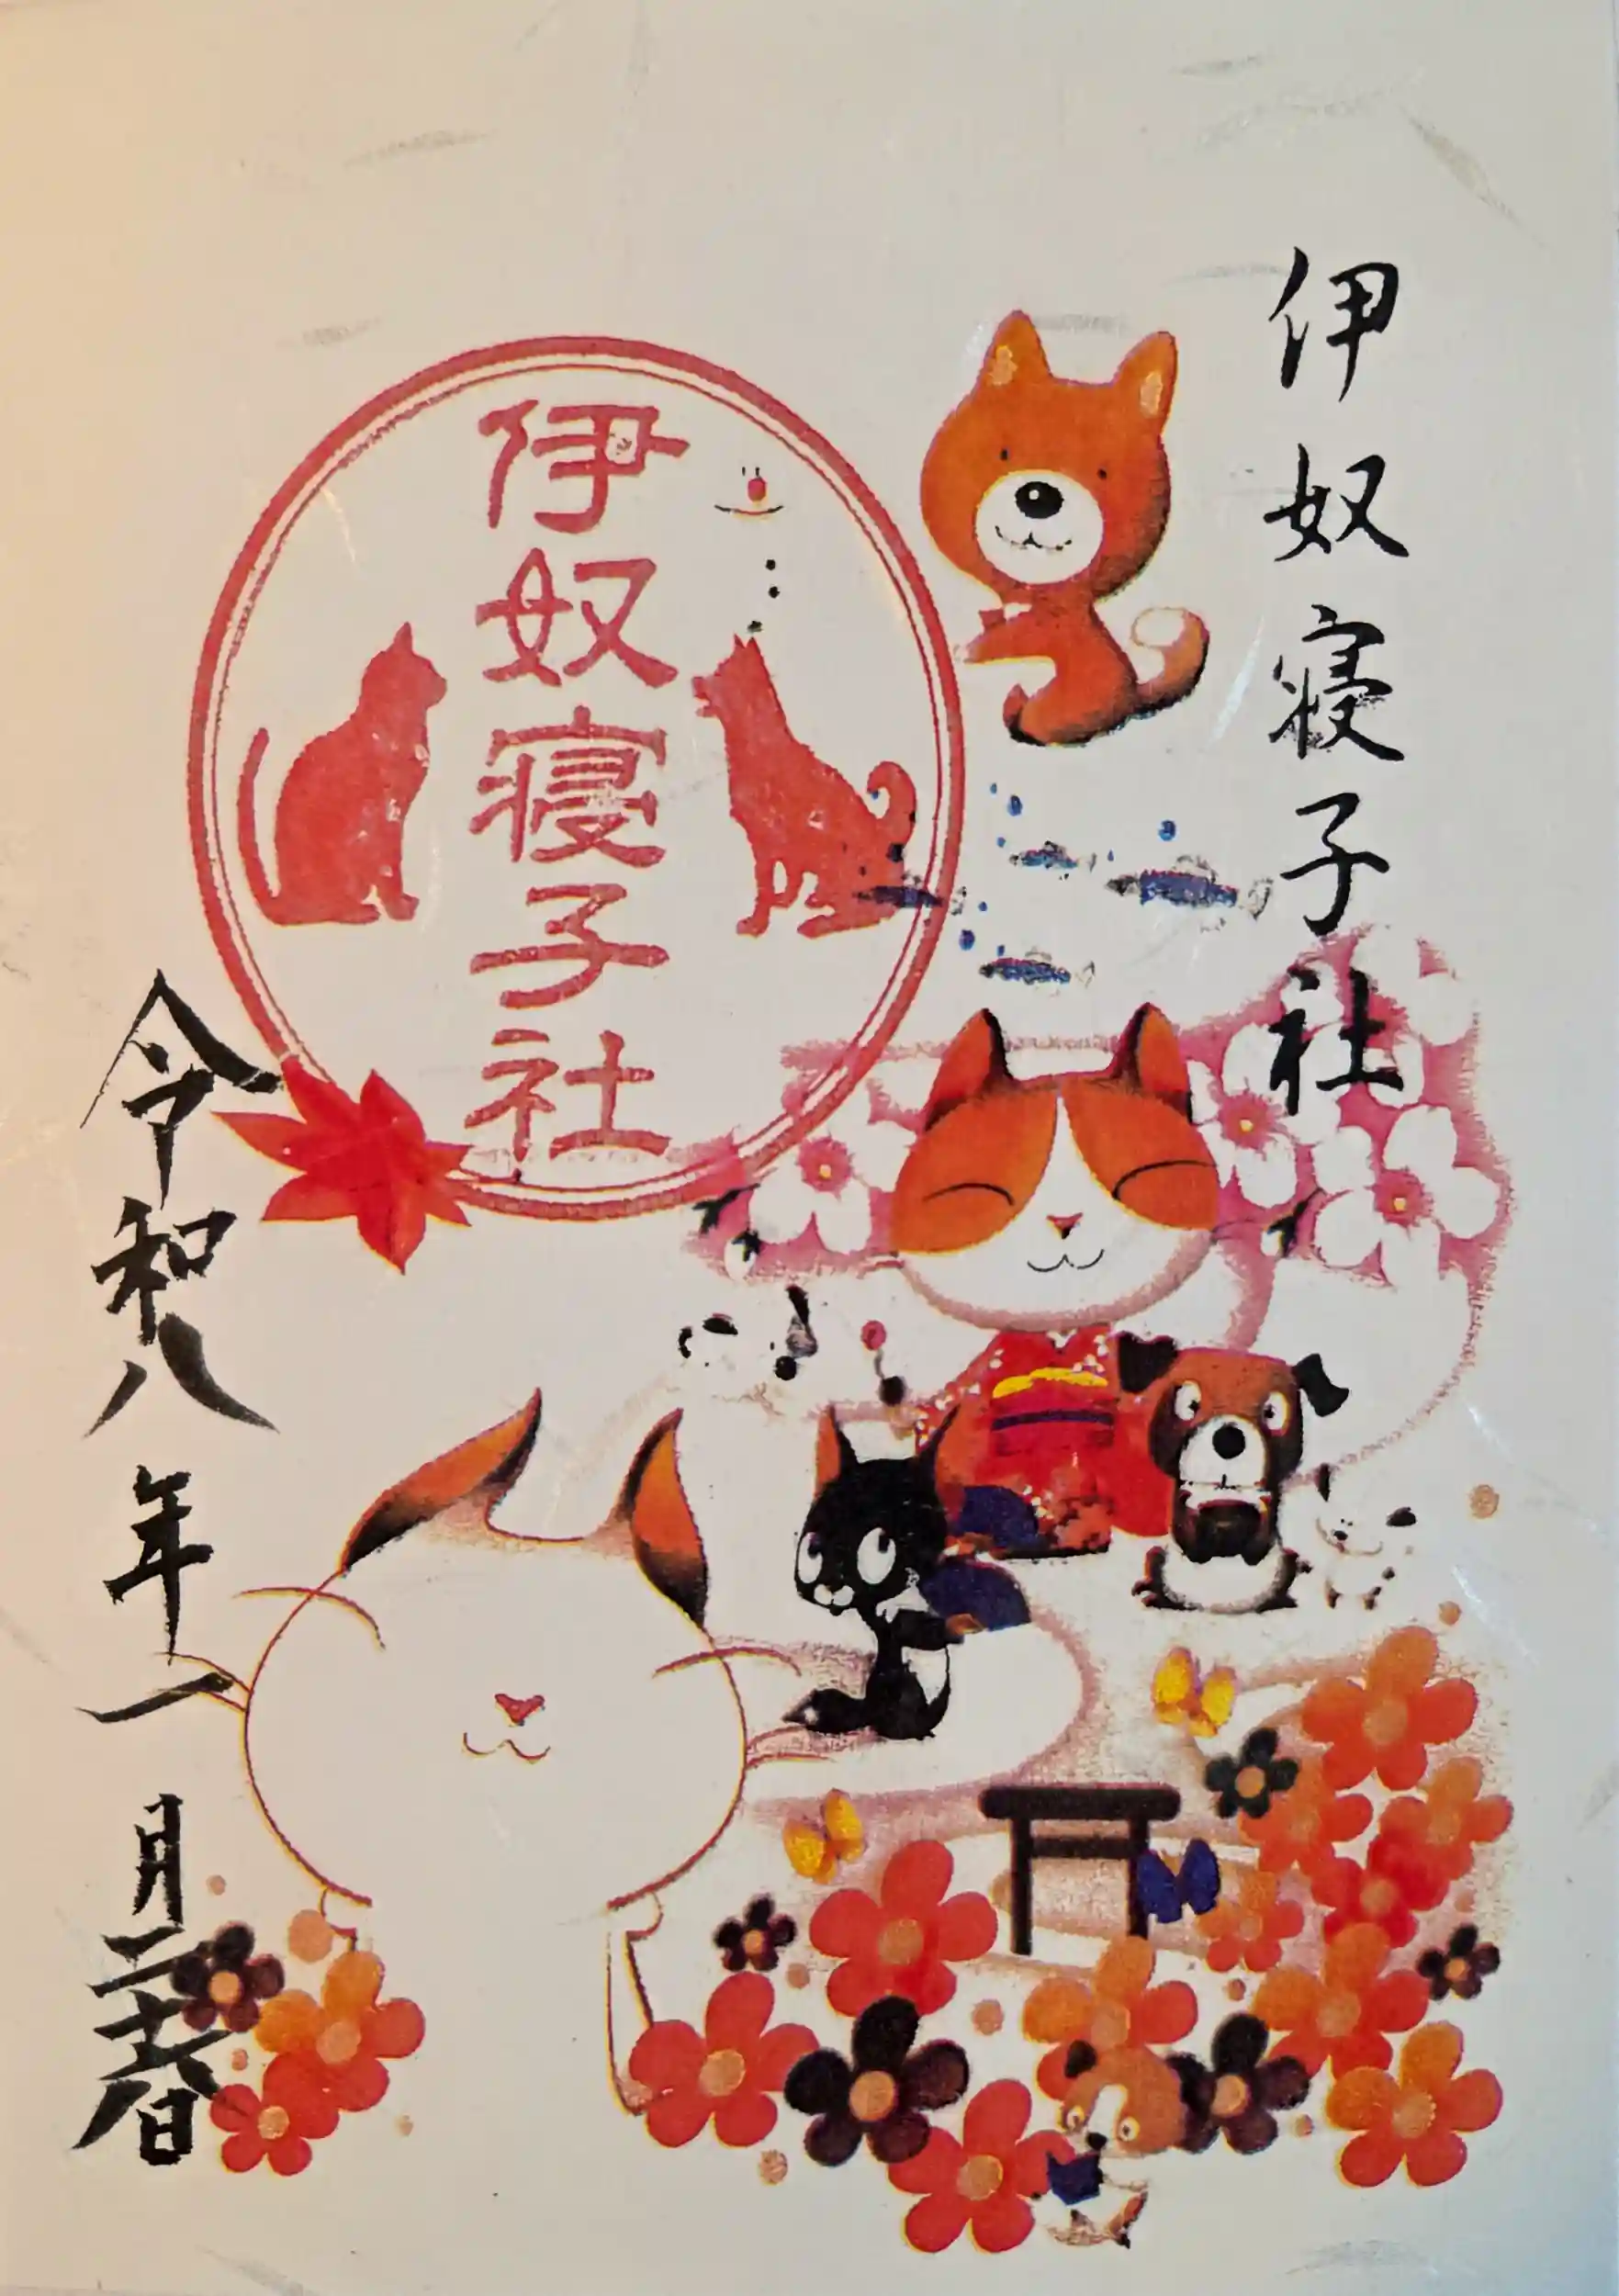 伊奴寝子社
伊奴寝子社
令和八年一月二十六日